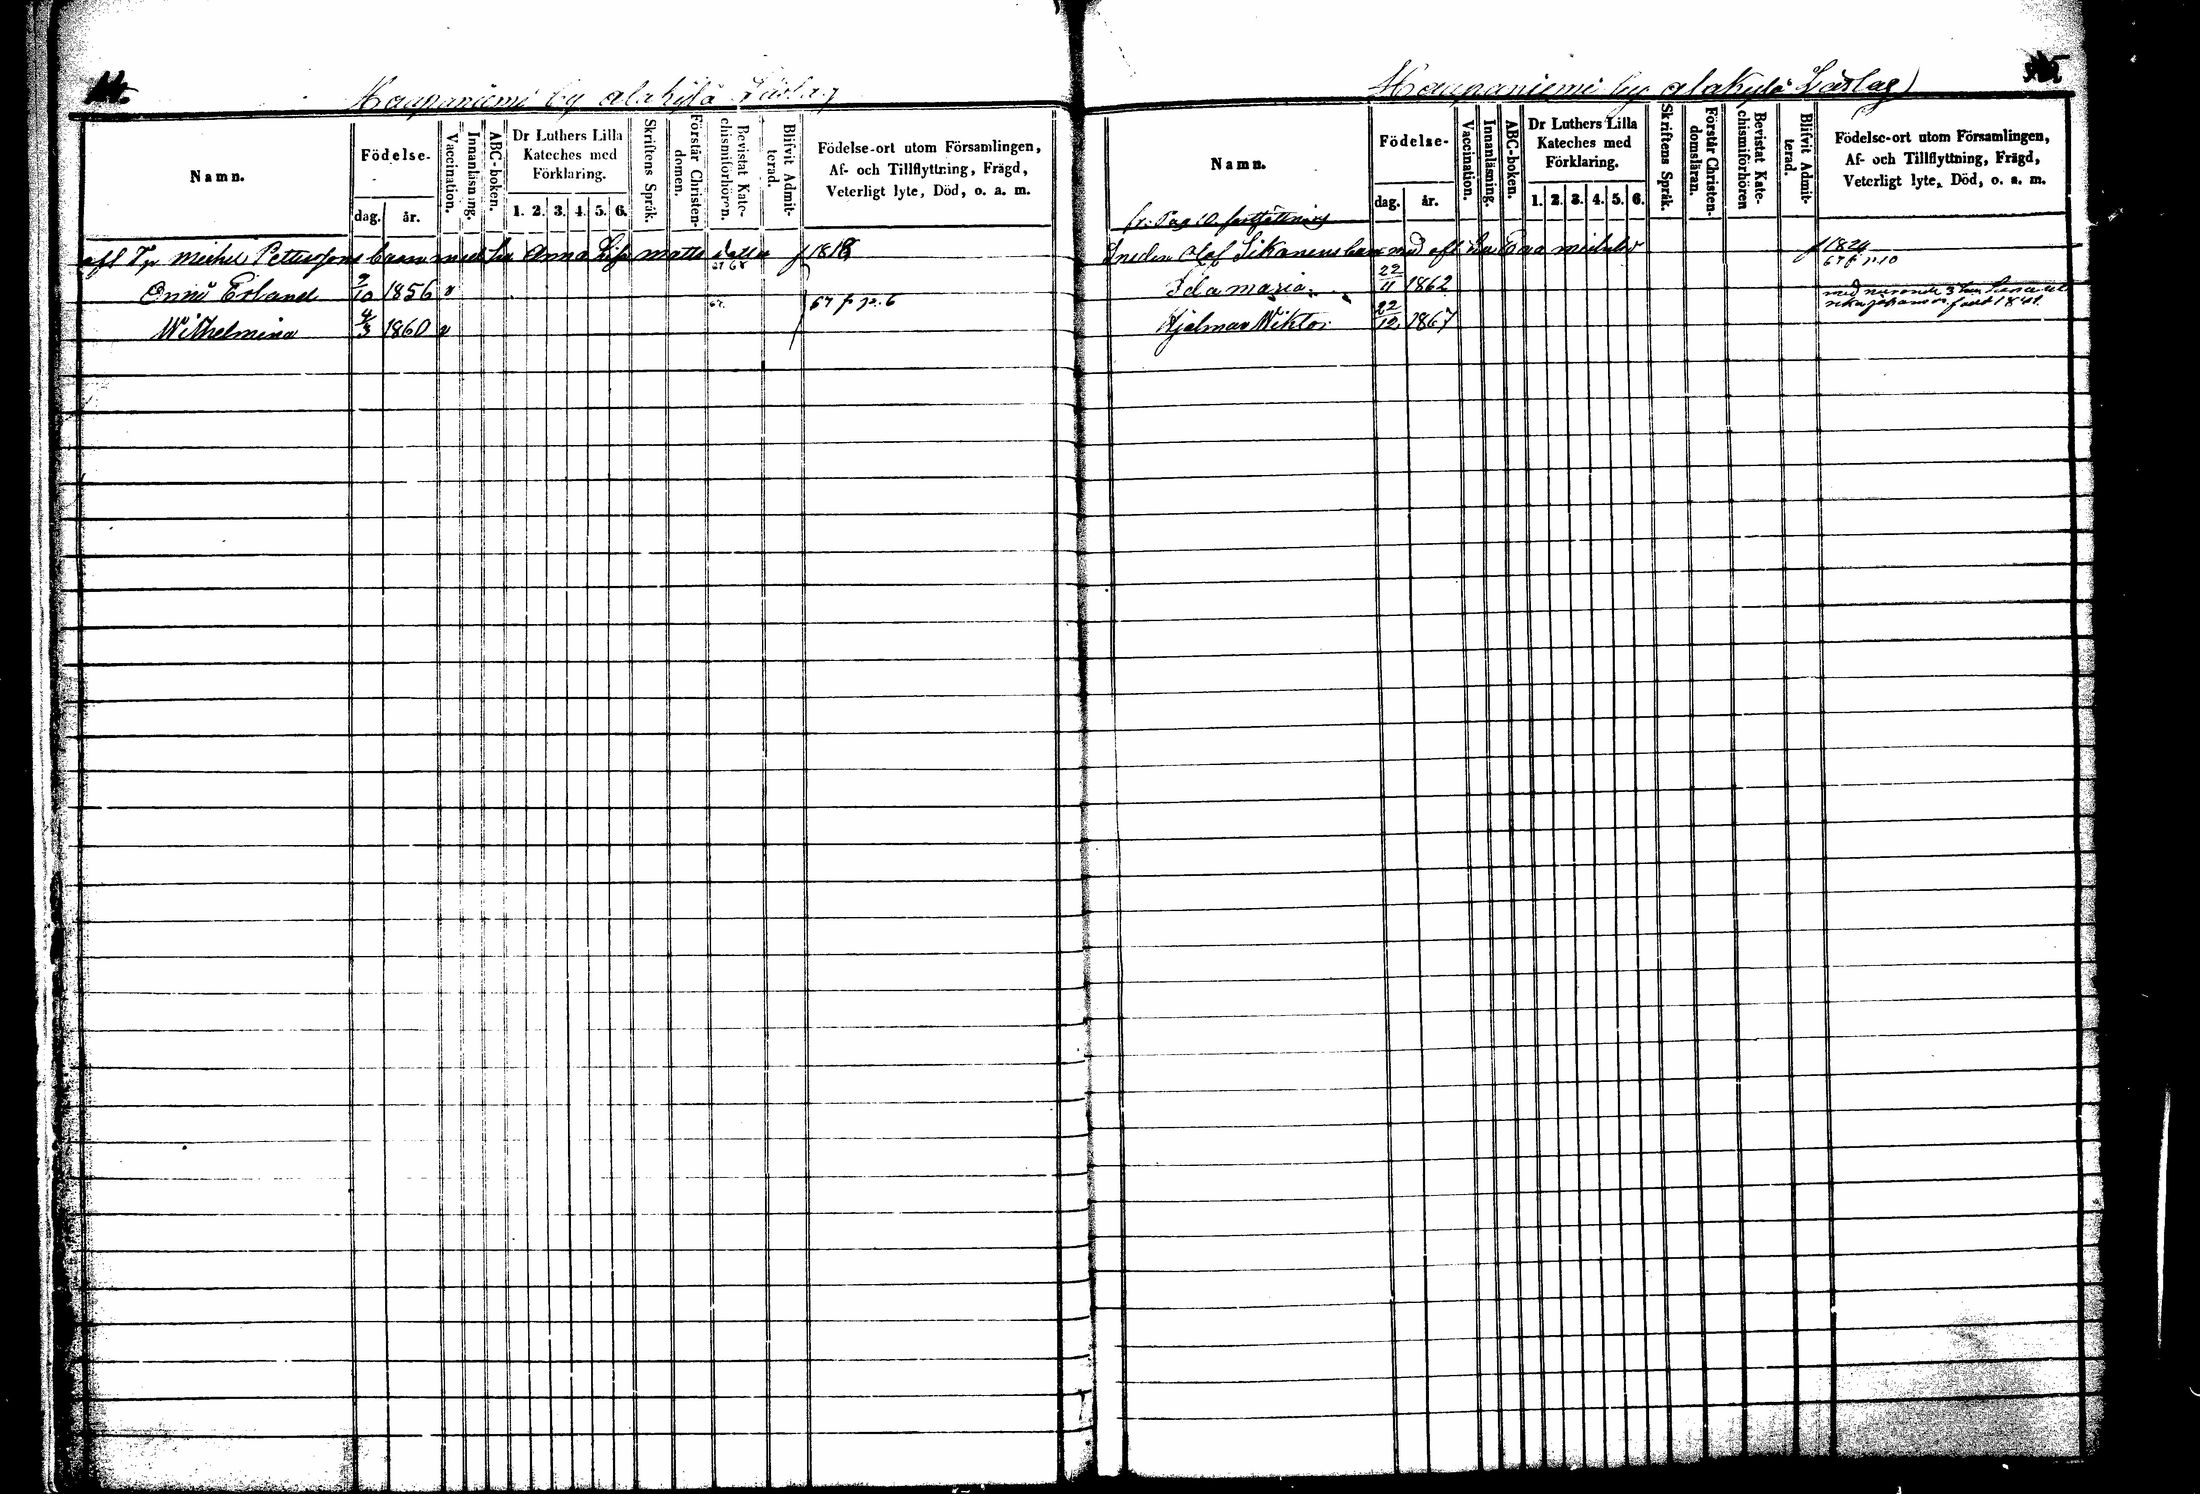 14.
Haapaniemi by alakylä Läslag
Namn.
Födelse-
dag.
år.
Vaccination.
Innanläsning.
ABC-boken.
Dr Luthers Lilla
Kateches med
Förklaring.
1. 2. 3. 4. 5. 6.
Skriftens Språk.
Förstår Christen-
domen.
Bevistat Kate-
chismiförhören.
Blifvit Admit-
terad.
Födelse-ort utom Församlingen,
Af- och Tillflyttning, Frägd,
Veterligt lyte, Död, o. a. m.
afl Tp Michel Petterssons barn med Anna Lisa matts f 1818
67 68
Onni Erland 9/10 1856 v 67. 67 f p. 6
Wilhelmina 4/3 1860 v
Haapaniemi by alakylä Läslag
Namn.
Födelse-
dag.
år.
Vaccination.
Innanläsning.
ABC-boken.
Dr Luthers Lilla
Kateches med
Förklaring.
1. 2. 3. 4. 5. 6.
Skriftens Språk.
Förstår Christen-
domsläran.
Bevistat Kate-
chismiförhören
Blifvit Admit-
terad.
Födelse-ort utom Församlingen,
Af- och Tillflyttning, Frägd,
Veterligt lyte, Död, o. a. m.
fr. Pag 10 fortsättning
Olof Sikanens barn med f 1824
67 f p 10
Ida Maria 22/11 1862
med 3
född 1841
Hjalmar Wiktor 22/12 1867